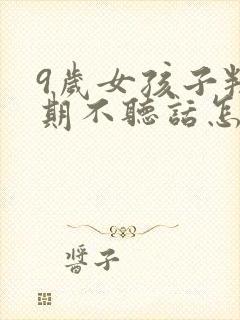 9歲女孩子
期不聽話怎
醬子